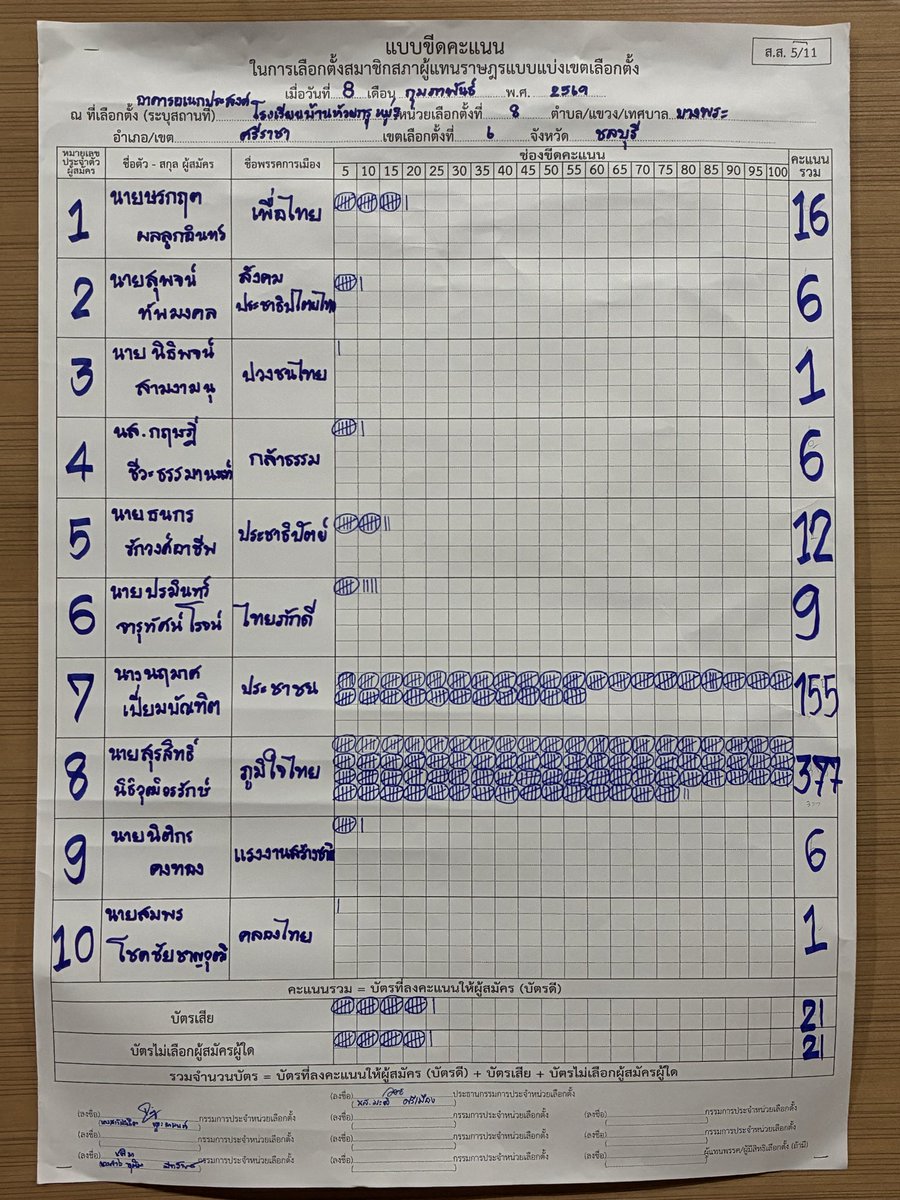 แบบขีดคะแนน
ส.ส. 5/11
ในการเลือกตั้งสมาชิกสภาผู้แทนราษฎรแบบแบ่งเขตเลือกตั้ง
เมื่อวันที่ 8 เดือน กุมภาพันธ์ พ.ศ. 2569
อาคารอเนกประสงค์
ณ ที่เลือกตั้ง (ระบุสถานที่) โรงเรียนบ้านห้วยกรุ หมู่8 หน่วยเลือกตั้งที่ 8 ตำบล/แขวง/เทศบาล บางพระ
อำเภอ/เขต ศรีราชา เขตเลือกตั้งที่ 6 จังหวัด ชลบุรี
หมายเลขประจำตัวผู้สมัคร ชื่อตัว - สกุล ผู้สมัคร ชื่อพรรคการเมือง ช่องขีดคะแนน คะแนนรวม
5 10 15 20 25 30 35 40 45 50 55 60 65 70 75 80 85 90 95 100
1 นายษรกฤต ผลลูกอินทร์ เพื่อไทย 16
2 นายสุพจน์ ทัพมงคล สังคมประชาธิปไตยไทย 6
3 นาย นิธิพจน์ สามงามนุ ปวงชนไทย 1
4 นส. กฤษฎี ชีวะธรรมานนท์ กล้าธรรม 6
5 นายธนกร รักวงศ์อาชีพ ประชาธิปัตย์ 12
6 นายปรมินทร์ จารุทัศน์โรจน์ ไทยภักดี 9
7 นางนฤมาศ เปี่ยมบัณฑิต ประชาชน 155
8 นายสุรสิทธิ์ นิธิวุฒิวรรักษ์ ภูมิใจไทย 377
9 นายนิติกร คงทอง แรงงานสร้างชาติ 6
10 นายสมพร โชคชัยชาญวุฒิ คลองไทย 1
คะแนนรวม = บัตรที่ลงคะแนนให้ผู้สมัคร (บัตรดี)
บัตรเสีย 21
บัตรไม่เลือกผู้สมัครผู้ใด 21
รวมจำนวนบัตร = บัตรที่ลงคะแนนให้ผู้สมัคร (บัตรดี) + บัตรเสีย + บัตรไม่เลือกผู้สมัครผู้ใด
(ลงชื่อ) ประธานกรรมการประจำหน่วยเลือกตั้ง
(ลงชื่อ) กรรมการประจำหน่วยเลือกตั้ง (ลงชื่อ) กรรมการประจำหน่วยเลือกตั้ง (ลงชื่อ) กรรมการประจำหน่วยเลือกตั้ง
(ลงชื่อ) กรรมการประจำหน่วยเลือกตั้ง (ลงชื่อ) กรรมการประจำหน่วยเลือกตั้ง (ลงชื่อ) กรรมการประจำหน่วยเลือกตั้ง
(ลงชื่อ) กรรมการประจำหน่วยเลือกตั้ง (ลงชื่อ) กรรมการประจำหน่วยเลือกตั้ง (ลงชื่อ) ผู้แทนพรรค/ผู้มีสิทธิเลือกตั้ง (ถ้ามี)